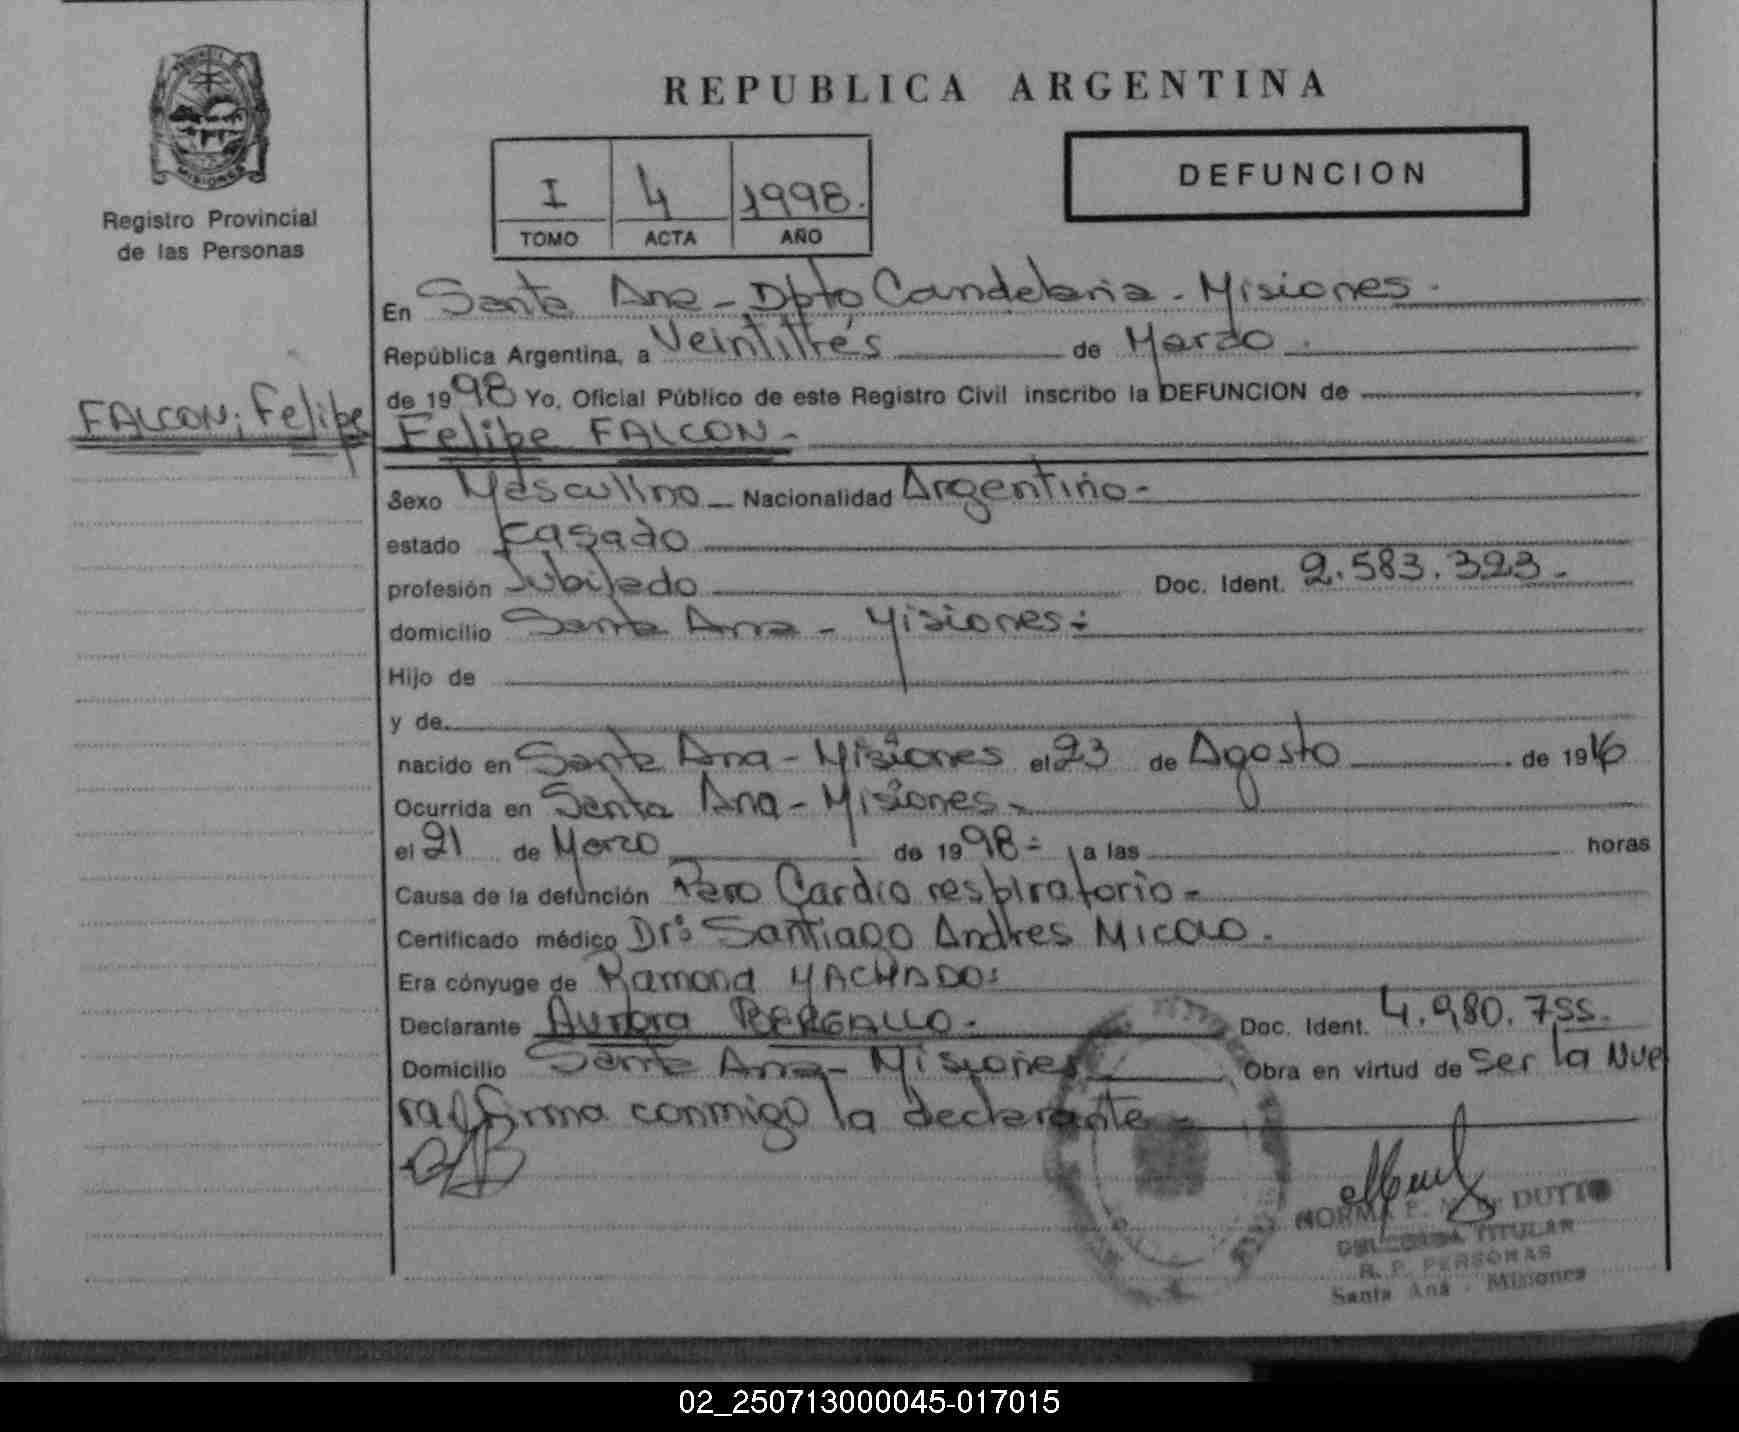 REPUBLICA ARGENTINA
MISIONES
Registro Provincial
de las Personas
I 4 1998.
TOMO ACTA AÑO
DEFUNCION
En Santa Ana - Dpto Candelaria - Misiones.
República Argentina, a Veintitrés de Marzo.
de 1998 Yo, Oficial Público de este Registro Civil inscribo la DEFUNCION de
FALCON; Felipe
Felipe FALCON-
Sexo Masculino Nacionalidad Argentino-
estado Casado
profesión Jubilado Doc. Ident. 2.583.323.
domicilio Santa Ana - Misiones-
Hijo de
y de
nacido en Santa Ana - Misiones el 23 de Agosto de 1916
Ocurrida en Santa Ana - Misiones-
el 21 de Marzo de 1998- a las horas
Causa de la defunción Paro Cardio respiratorio-
Certificado médico Dr: Santiago Andres Micao.
Era cónyuge de Ramona MACHADO:
Declarante Aurora BERGALLO- Doc. Ident. 4.980.755.
Domicilio Santa Ana - Misiones Obra en virtud de Ser la Nue
ra firma conmigo la declarante-
NORMA DUTTO
DELEGADA TITULAR
R. P. PERSONAS
Santa Ana - Misiones
02_250713000045-017015